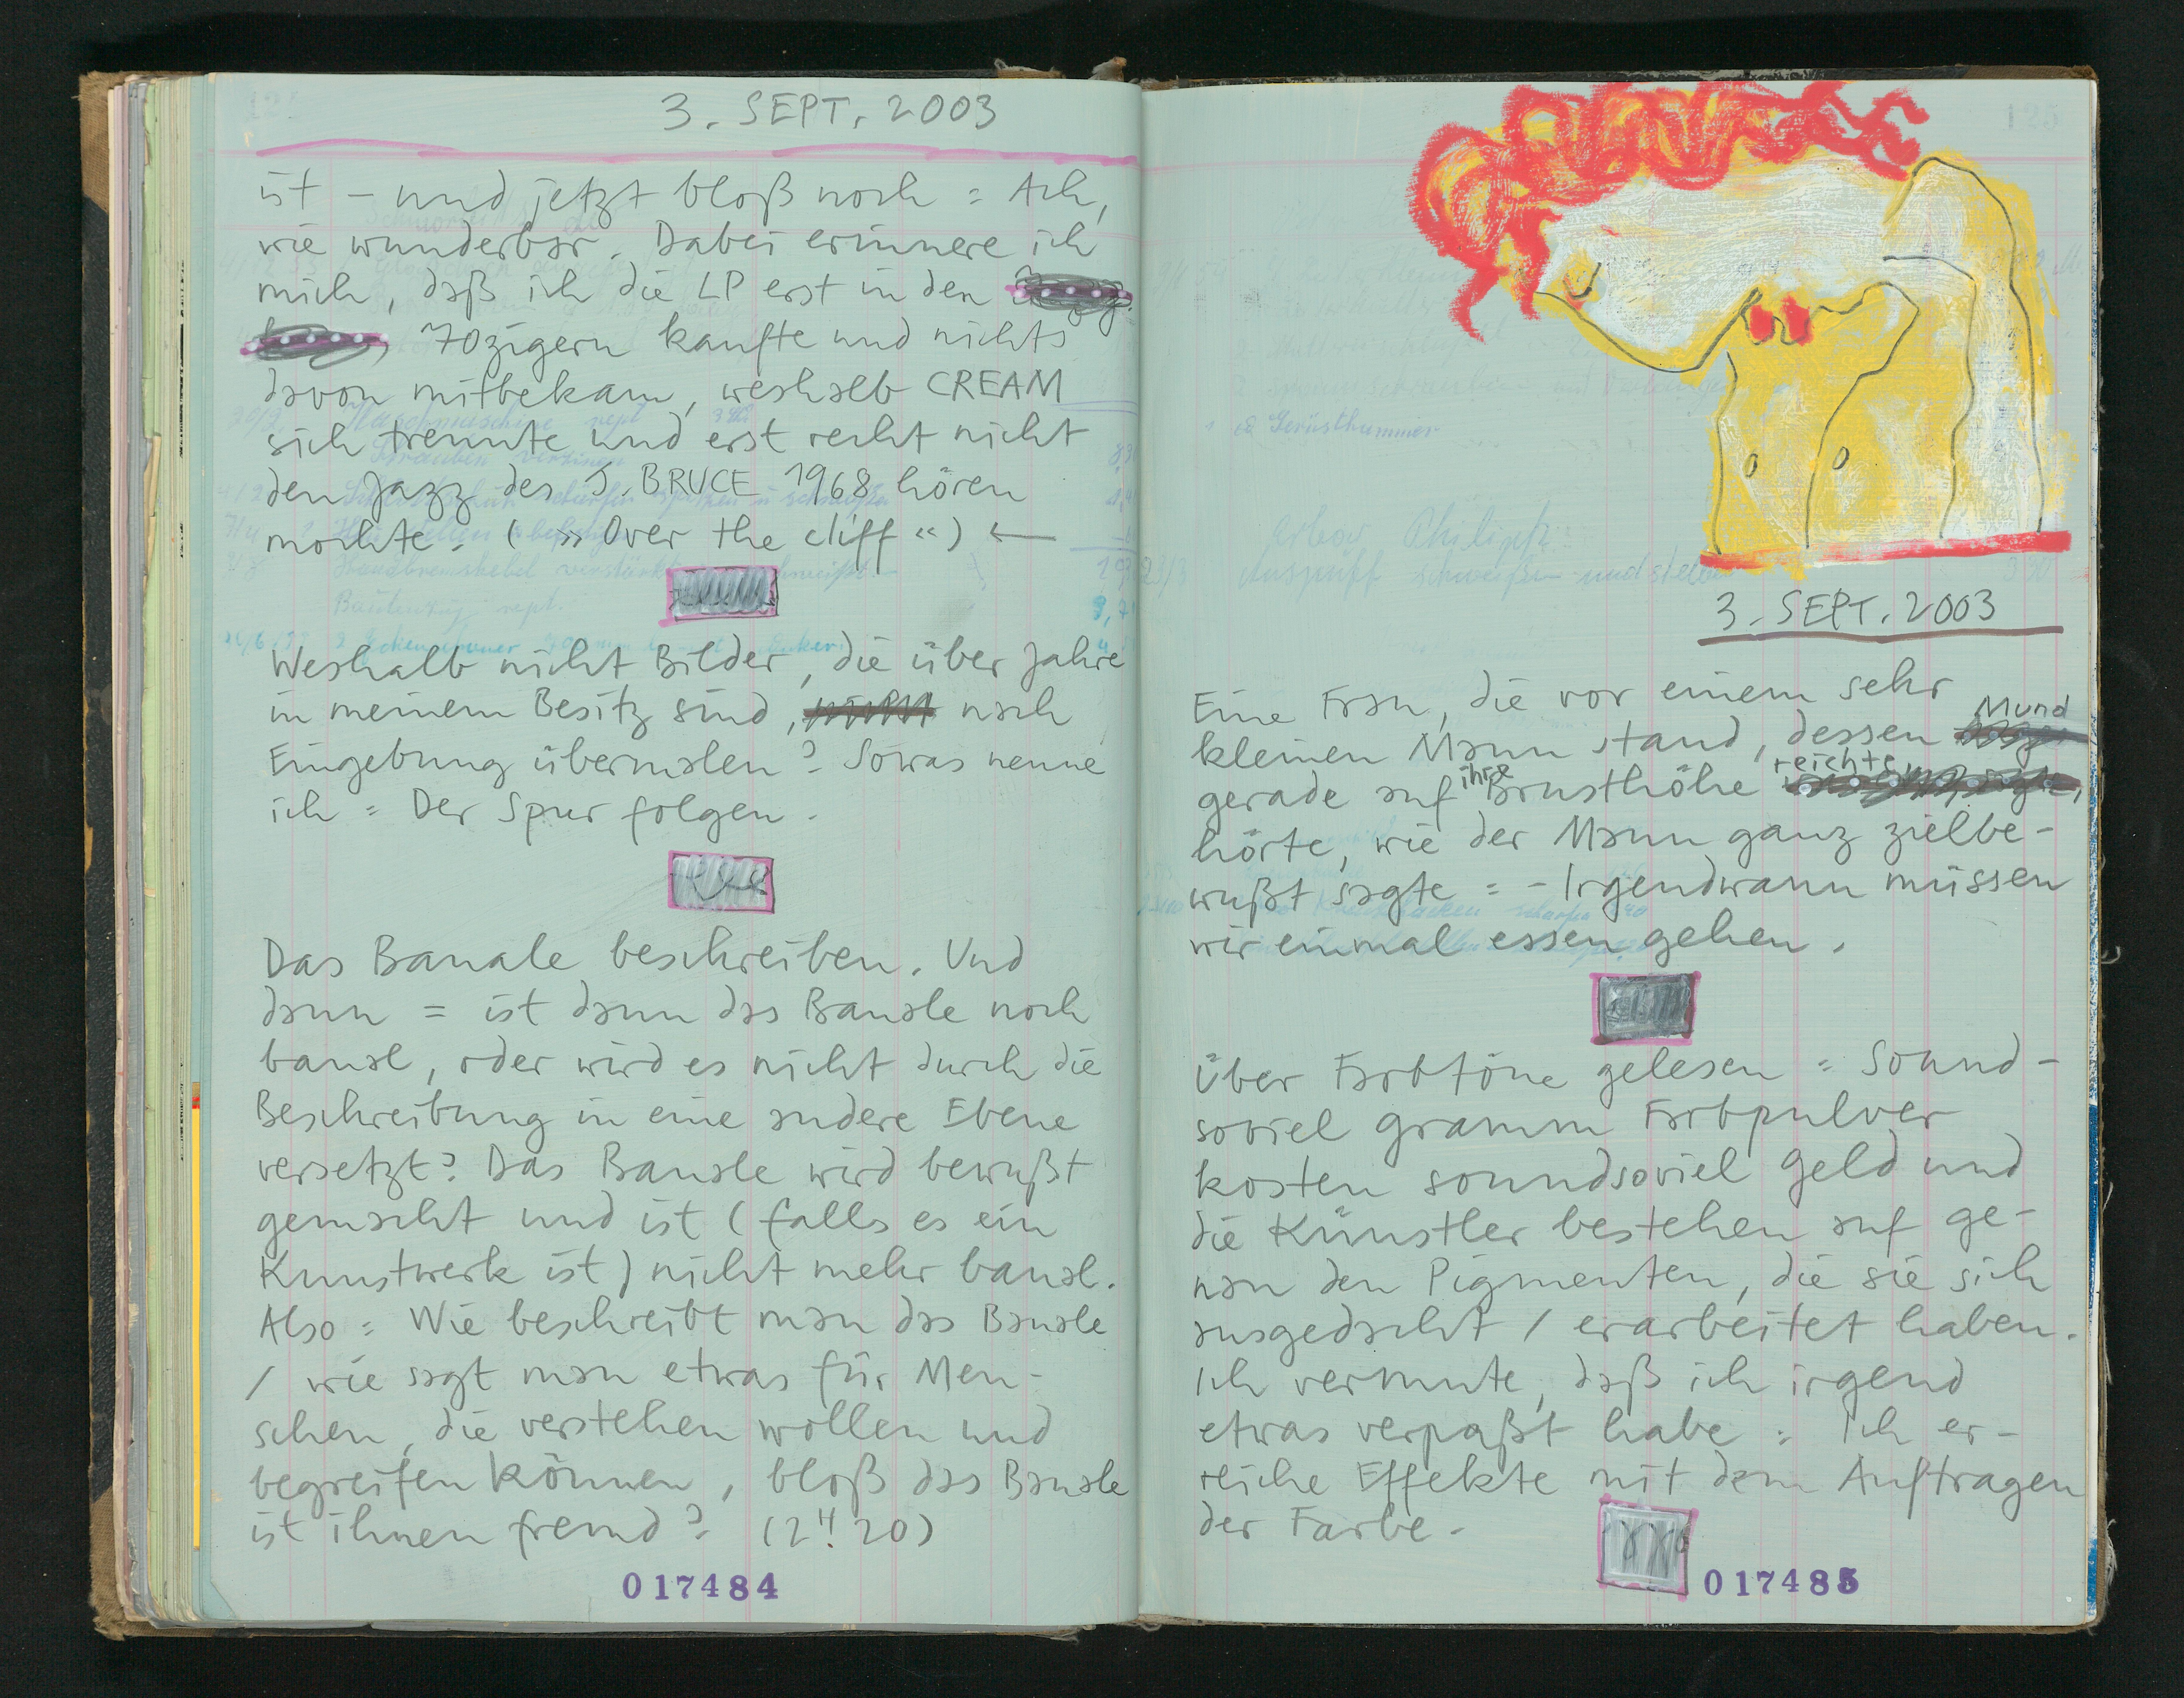 3. SEPT. 2003
ist – und jetzt bloß noch = Ach,
wie wunderbar. Dabei erinnere ich
mich, daß ich die LP erst in den
70zigern kaufte und nichts
davon mitbekam, weshalb CREAM
sich trennte und erst recht nicht
den Jazz des J. BRUCE 1968 hören
mochte. ( » Over the cliff « ) ←
Weshalb nicht Bilder, die über Jahre
in meinem Besitz sind, nach
Eingebung übermalen? Sowas nenne
ich = Der Spur folgen.
Das Banale beschreiben. Und
dann = ist dann das Banale noch
banal, oder wird es nicht durch die
Beschreibung in eine andere Ebene
versetzt? Das Banale wird bewußt
gemacht und ist (falls es ein
Kunstwerk ist) nicht mehr banal.
Also = Wie beschreibt man das Banale
/ wie sagt man etwas für Men-
schen, die verstehen wollen und
begreifen können, bloß das Banale
ist ihnen fremd? (2 H! 20)
017484
125
Gerüsthammer
Philipp
Auspuff schweißen und
3. SEPT. 2003
Eine Frau, die vor einem sehr
kleinen Mann stand, dessen Mund
gerade auf ihre Brusthöhe reichte,
hörte, wie der Mann ganz zielbe-
wußt sagte = – Irgendwann müssen
wir einmal essen gehen.
Über Farbtöne gelesen = Sound-
soviel Gramm Farbpulver
kosten soundsoviel Geld und
die Künstler bestehen auf ge-
nau den Pigmenten, die sie sich
ausgedacht / erarbeitet haben.
Ich vermute, daß ich irgend
etwas verpaßt habe = Ich er-
reiche Effekte mit dem Auftragen
der Farbe.
017485